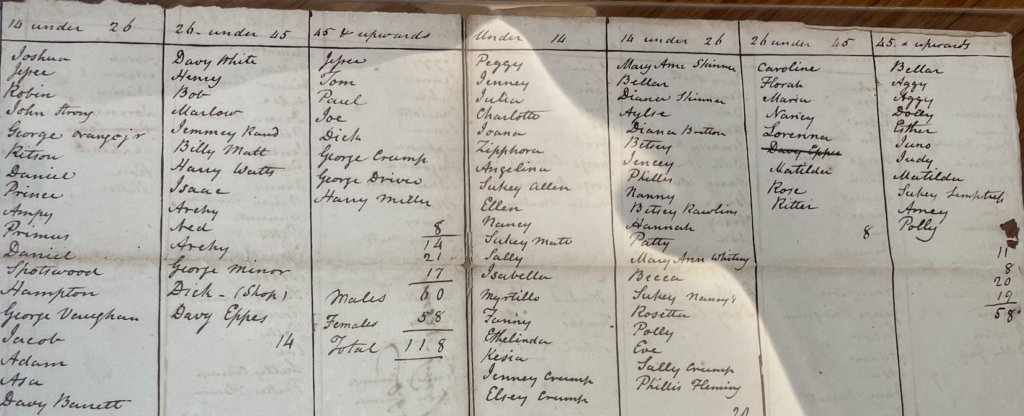 14 under 26
Joshua
Jesse
Robin
John Strong
George Orange jr
Kitson
Daniel
Prince
Ampy
Primus
Daniel
Spotswood
Hampton
George Vaughan
Jacob
Adam
Asa
Davy Barrett
26 under 45
Davy White
Henry
Bob
Marlow
Jemmey Rand
Billy Matt
Harry Watts
Isaac
Archy
Ned
Archy
George Minor
Dick - (Shop)
Davy Eppes
14
45 & upwards
Jesse
Tom
Paul
Joe
Dick
George Crump
George Driver
Harry Miller
8
14
21
17
Males 60
Females 58
Total 118
Under 14
Peggy
Jenney
Julia
Charlotte
Joana
Zipphora
Angelina
Sukey Allen
Ellen
Nancy
Sukey Matt
Sally
Isabella
Myrtillo
Fanny
Ethelinda
Kesia
Jenney Crump
Elsey Crump
14 under 26
Mary Ann Skinner
Bellar
Diana Skinner
Aylse
Diana Britton
Betsey
Jencey
Phillis
Nanny
Betsey Rawlins
Hannah
Patty
Mary Ann Whiting
Becca
Sukey Nancy's
Rosetta
Polly
Eve
Sally Crump
Phillis Fleming
20
26 under 45
Caroline
Florah
Maria
Nancy
Lorenna
Davy Eppes
Matilda
Rose
Kitter
8
45 & upwards
Bellar
Aggy
Aggy
Dolly
Esther
Juno
Judy
Matilda
Sukey Sempstress
Amey
Polly
11
8
20
19
58